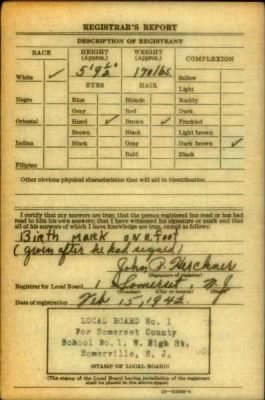 REGISTRAR'S REPORT
DESCRIPTION OF REGISTRANT
RACE HEIGHT (Approx.) WEIGHT (Approx.) COMPLEXION
5' 9½" 170 lbs.
White ✓ Sallow
EYES HAIR Light
Negro Blue Blonde Ruddy
Gray Red Dark
Oriental Hazel ✓ Brown ✓ Freckled
Brown Black Light brown
Indian Black Gray Dark brown ✓
Bald Black
Filipino
Other obvious physical characteristics that will aid in identification
I certify that my answers are true; that the person registered has read or has had
read to him his own answers; that I have witnessed his signature or mark and that
all of his answers of which I have knowledge are true, except as follows:
Birth mark on R foot
(given after he had signed)
John P.
(Signature of registrar)
Registrar for Local Board 1 Somerset N.J
(Number) (City or county) (State)
Date of registration Feb 15, 1942
LOCAL BOARD No. 1
For Somerset County
School No. 1, W. High St.
Somerville, N. J.
STAMP OF LOCAL BOARD
(The stamp of the Local Board having jurisdiction of the registrant
shall be placed in the above space)